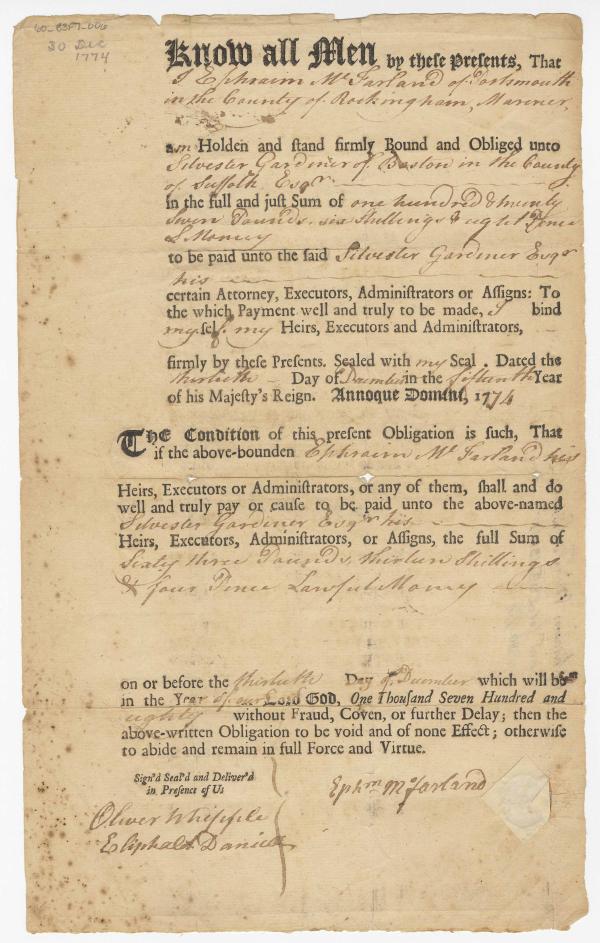 60-83F7-006
30 Dec
1774
Know all Men by these Presents, That
I Ephraim Mc Farland of Portsmouth
in the County of Rockingham, Mariner,
am Holden and stand firmly Bound and Obliged unto
Silvester Gardiner of Boston in the County
of Suffolk Esqr
in the full and just Sum of one hundred & twenty
Seven Pounds, six Shillings & eight Pence
L Money
to be paid unto the said Silvester Gardiner Esqr
his
certain Attorney, Executors, Administrators or Assigns: To
the which Payment well and truly to be made, I bind
my self, my Heirs, Executors and Administrators,
firmly by these Presents. Sealed with my Seal . Dated the
thirtieth Day of December in the fifteenth Year
of his Majesty's Reign. Annoque Domini, 1774
THE Condition of this present Obligation is such, That
if the above-bounden Ephraim Mc Farland his
Heirs, Executors or Administrators, or any of them, shall and do
well and truly pay or cause to be paid unto the above-named
Silvester Gardiner Esqr his
Heirs, Executors, Administrators, or Assigns, the full Sum of
Sixty three Pounds, thirteen Shillings
& four Pence Lawful Money
on or before the thirtieth Day of December which will be
in the Year of our Lord God, One Thousand Seven Hundred and
eighty without Fraud, Coven, or further Delay; then the
above-written Obligation to be void and of none Effect; otherwise
to abide and remain in full Force and Virtue.
Sign'd Seal'd and Deliver'd
in Presence of Us
Ephm McFarland
Oliver Whipple
Eliphalet Daniell